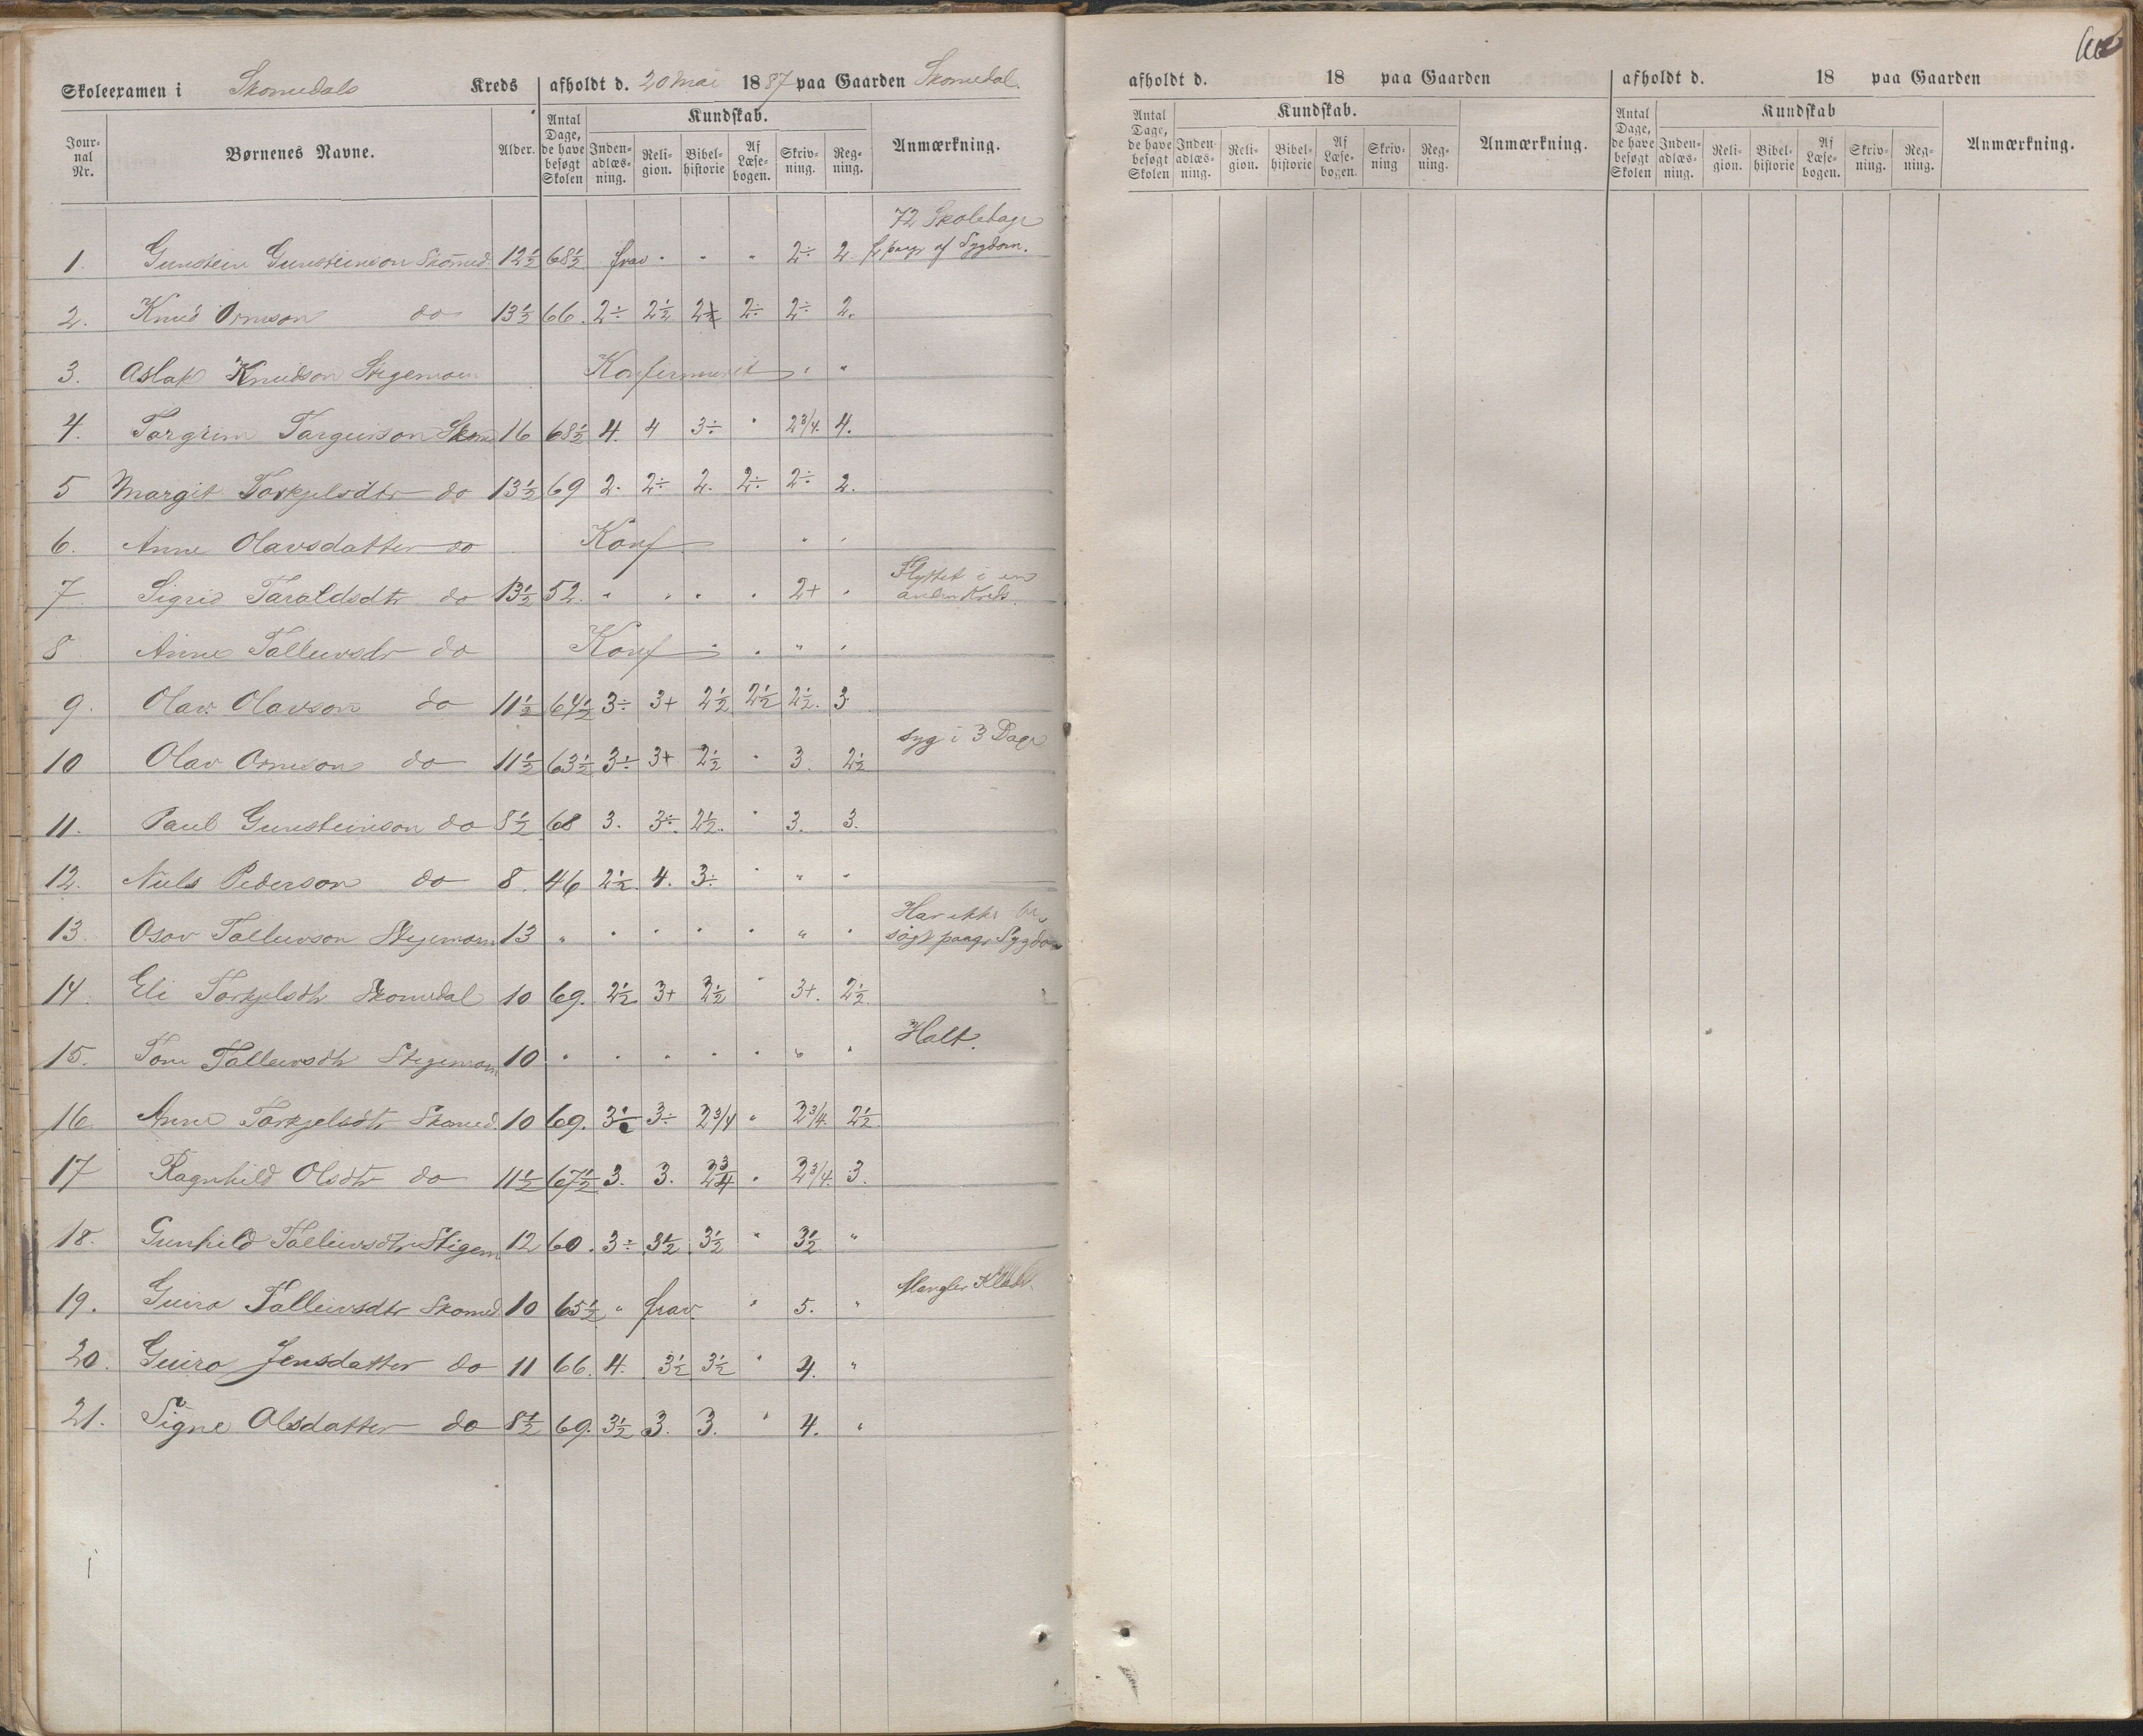 Skoleexamen i Skomedals Kreds afholdt d. 20 Mai 1887 paa Gaarden Skomedal.
Jour-nal Nr. Børnenes Navne. Alder. Antal Dage, de have besøgt Skolen Kundskab. Inden-adlæs-ning. Reli-gion. Bibel-historie Af Læse-bogen. Skriv-ning. Reg-ning. Anmærkning.
72 Skoledage
1. Gunstein Gunsteinson Skomed. 12½ 68½ frav " " " 2÷ 2 paagr af Sygdom.
2. Knud Ormson do 13½ 66. 2÷ 2½ 2÷ 2÷ 2.
3. Aslak Knudson Stigemoen Konfirmeret " "
4. Torgrim Targeirson Skom 16 68½ 4. 4 3÷ " 2 3/4. 4.
5 Margit Torkjelsdtr do 13½ 69 2. 2÷ 2. 2÷ 2÷ 2.
6. Anne Olavsdatter do Konf " "
7 Sigrid Taraldsdtr do 13½ 52. " " " " 2+ " Flyttet i en anden Kreds.
8 Anne Talleivsdr do Konf " " " "
9. Olav Olavson do 11½ 64½ 3÷ 3+ 2½ 2½ 2½. 3
10 Olav Ormson do 11½ 63½ 3÷ 3+ 2½ " 3. 2½ syg i 3 Dage
11. Paul Gunsteinson do 8½ 68 3. 3÷. 2½. " 3. 3.
12. Niels Pederson do 8. 46 2½ 4. 3÷ " " "
13. Osov Talleivson Stigemoen 13 " " " " " " " Har ikke be søgt paagr Sygdom
14. Eli Torkjelsdtr Skomedal 10 69. 2½ 3+ 3½ " 3+. 2½.
15. Tone Talleivsdtr Stigemoen 10 " " " " " " " Halt.
16. Anne Torkjelsdtr Skomed. 10 69. 3½ 3÷ 2 3/4 " 2 3/4. 2½
17 Ragnhild Olsdtr do 11½ 67½ 3. 3. 2 3/4 " 2 3/4. 3.
18. Gunhild Talleivsdtr Stigem 12 60. 3÷ 3½ 3½ " 3½ "
19. Guro Talleivsdtr Skomed. 10 65½ " frav. " 5. " Mangler Klæder.
20. Guro Jensdatter do 11 66. 4. 3½ 3½ " 4. "
21. Signe Olsdatter do 8½ 69. 3½ 3. 3. " 4. "
afholdt d. 18 paa Gaarden
Antal Dage, de have besøgt Skolen Kundskab. Inden-adlæs-ning. Reli-gion. Bibel-historie Af Læse-bogen. Skriv-ning Reg-ning. Anmærkning.
afholdt d. 18 paa Gaarden
Antal Dage, de have besøgt Skolen Kundskab Inden-adlæs-ning. Reli-gion. Bibel-historie Af Læse-bogen. Skriv-ning. Reg-ning. Anmærkning.